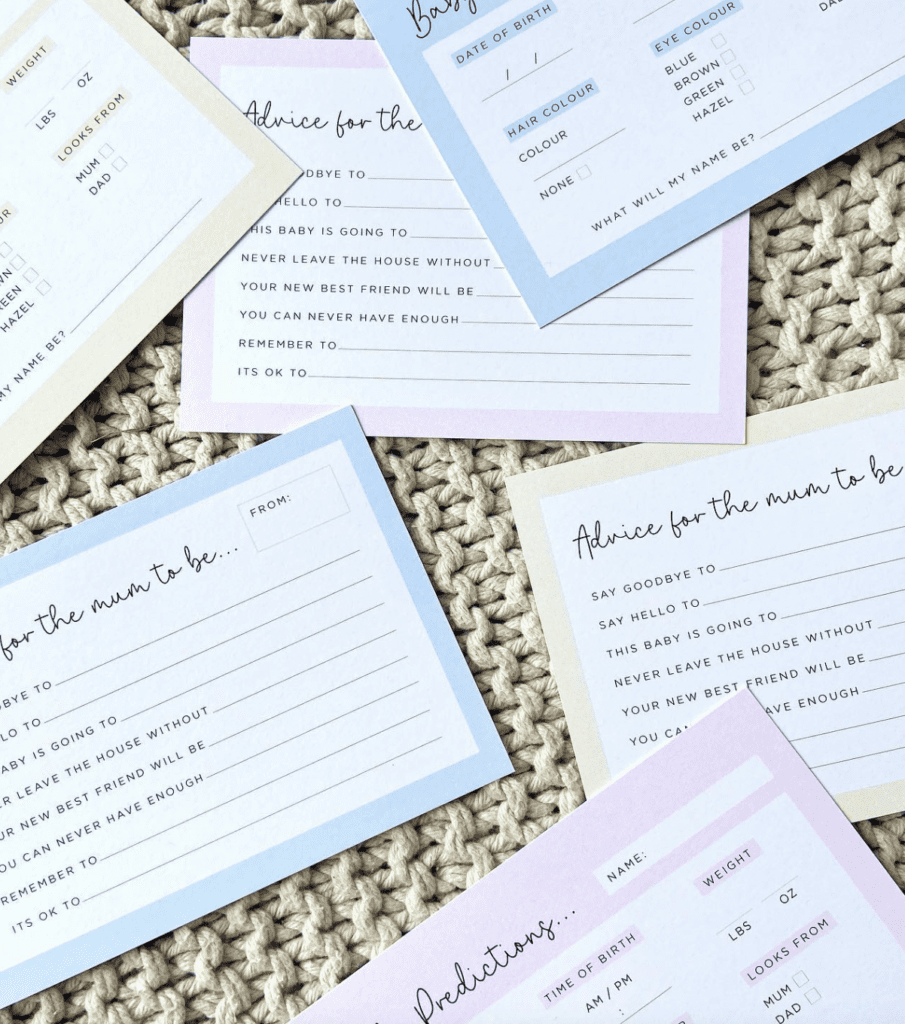 WEIGHT
LBS OZ
LOOKS FROM
MUM
DAD
HAZEL
MY NAME BE?
Advice for the
DBYE TO
HELLO TO
THIS BABY IS GOING TO
NEVER LEAVE THE HOUSE WITHOUT
YOUR NEW BEST FRIEND WILL BE
YOU CAN NEVER HAVE ENOUGH
REMEMBER TO
ITS OK TO
Baby
DATE OF BIRTH
/ /
HAIR COLOUR
COLOUR
NONE
EYE COLOUR
BLUE
BROWN
GREEN
HAZEL
WHAT WILL MY NAME BE?
FROM:
for the mum to be...
DBYE TO
LO TO
BABY IS GOING TO
ER LEAVE THE HOUSE WITHOUT
UR NEW BEST FRIEND WILL BE
YOU CAN NEVER HAVE ENOUGH
REMEMBER TO
ITS OK TO
Advice for the mum to be
SAY GOODBYE TO
SAY HELLO TO
THIS BABY IS GOING TO
NEVER LEAVE THE HOUSE WITHOUT
YOUR NEW BEST FRIEND WILL BE
YOU CAN HAVE ENOUGH
NAME:
Predictions...
TIME OF BIRTH
AM / PM
:
WEIGHT
LBS OZ
LOOKS FROM
MUM
DAD